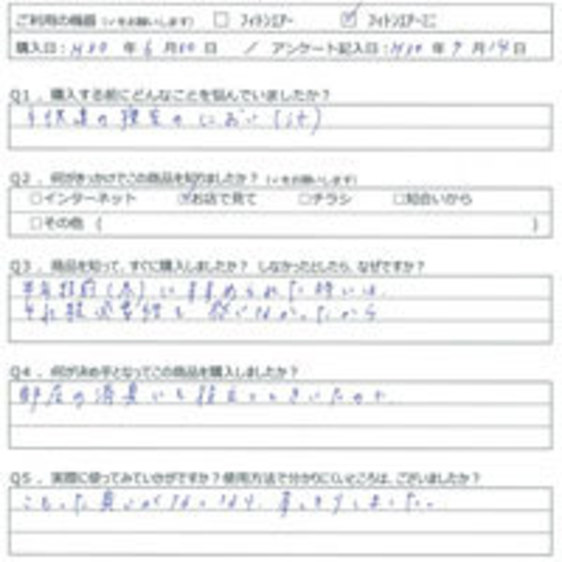 ご利用の機器（✓をお願いします） □ フィトンエアー ☑ フィトンエアーミニ
購入日：H30 年 6 月 日 ／ アンケート記入日：H30 年 7 月 14 日
Q1．購入する前にどんなことを悩んでいましたか？
子供達の寝室のにおい(汗)
Q2．何がきっかけでこの商品を知りましたか？（✓をお願いします）
□インターネット ☑お店で見て □チラシ □知合いから
□その他（ ）
Q3．商品を知って、すぐに購入しましたか？ しなかったとしたら、なぜですか？
半年 前(冬)にすすめられた時は、
それ なかったから
Q4．何が決め手となってこの商品を購入しましたか？
部屋の消臭に ときいたので
Q5．実際に使ってみていかがですか？使用方法で分かりにくいところは、ございましたか？
こもった臭いがなくなり、すっきりしました。